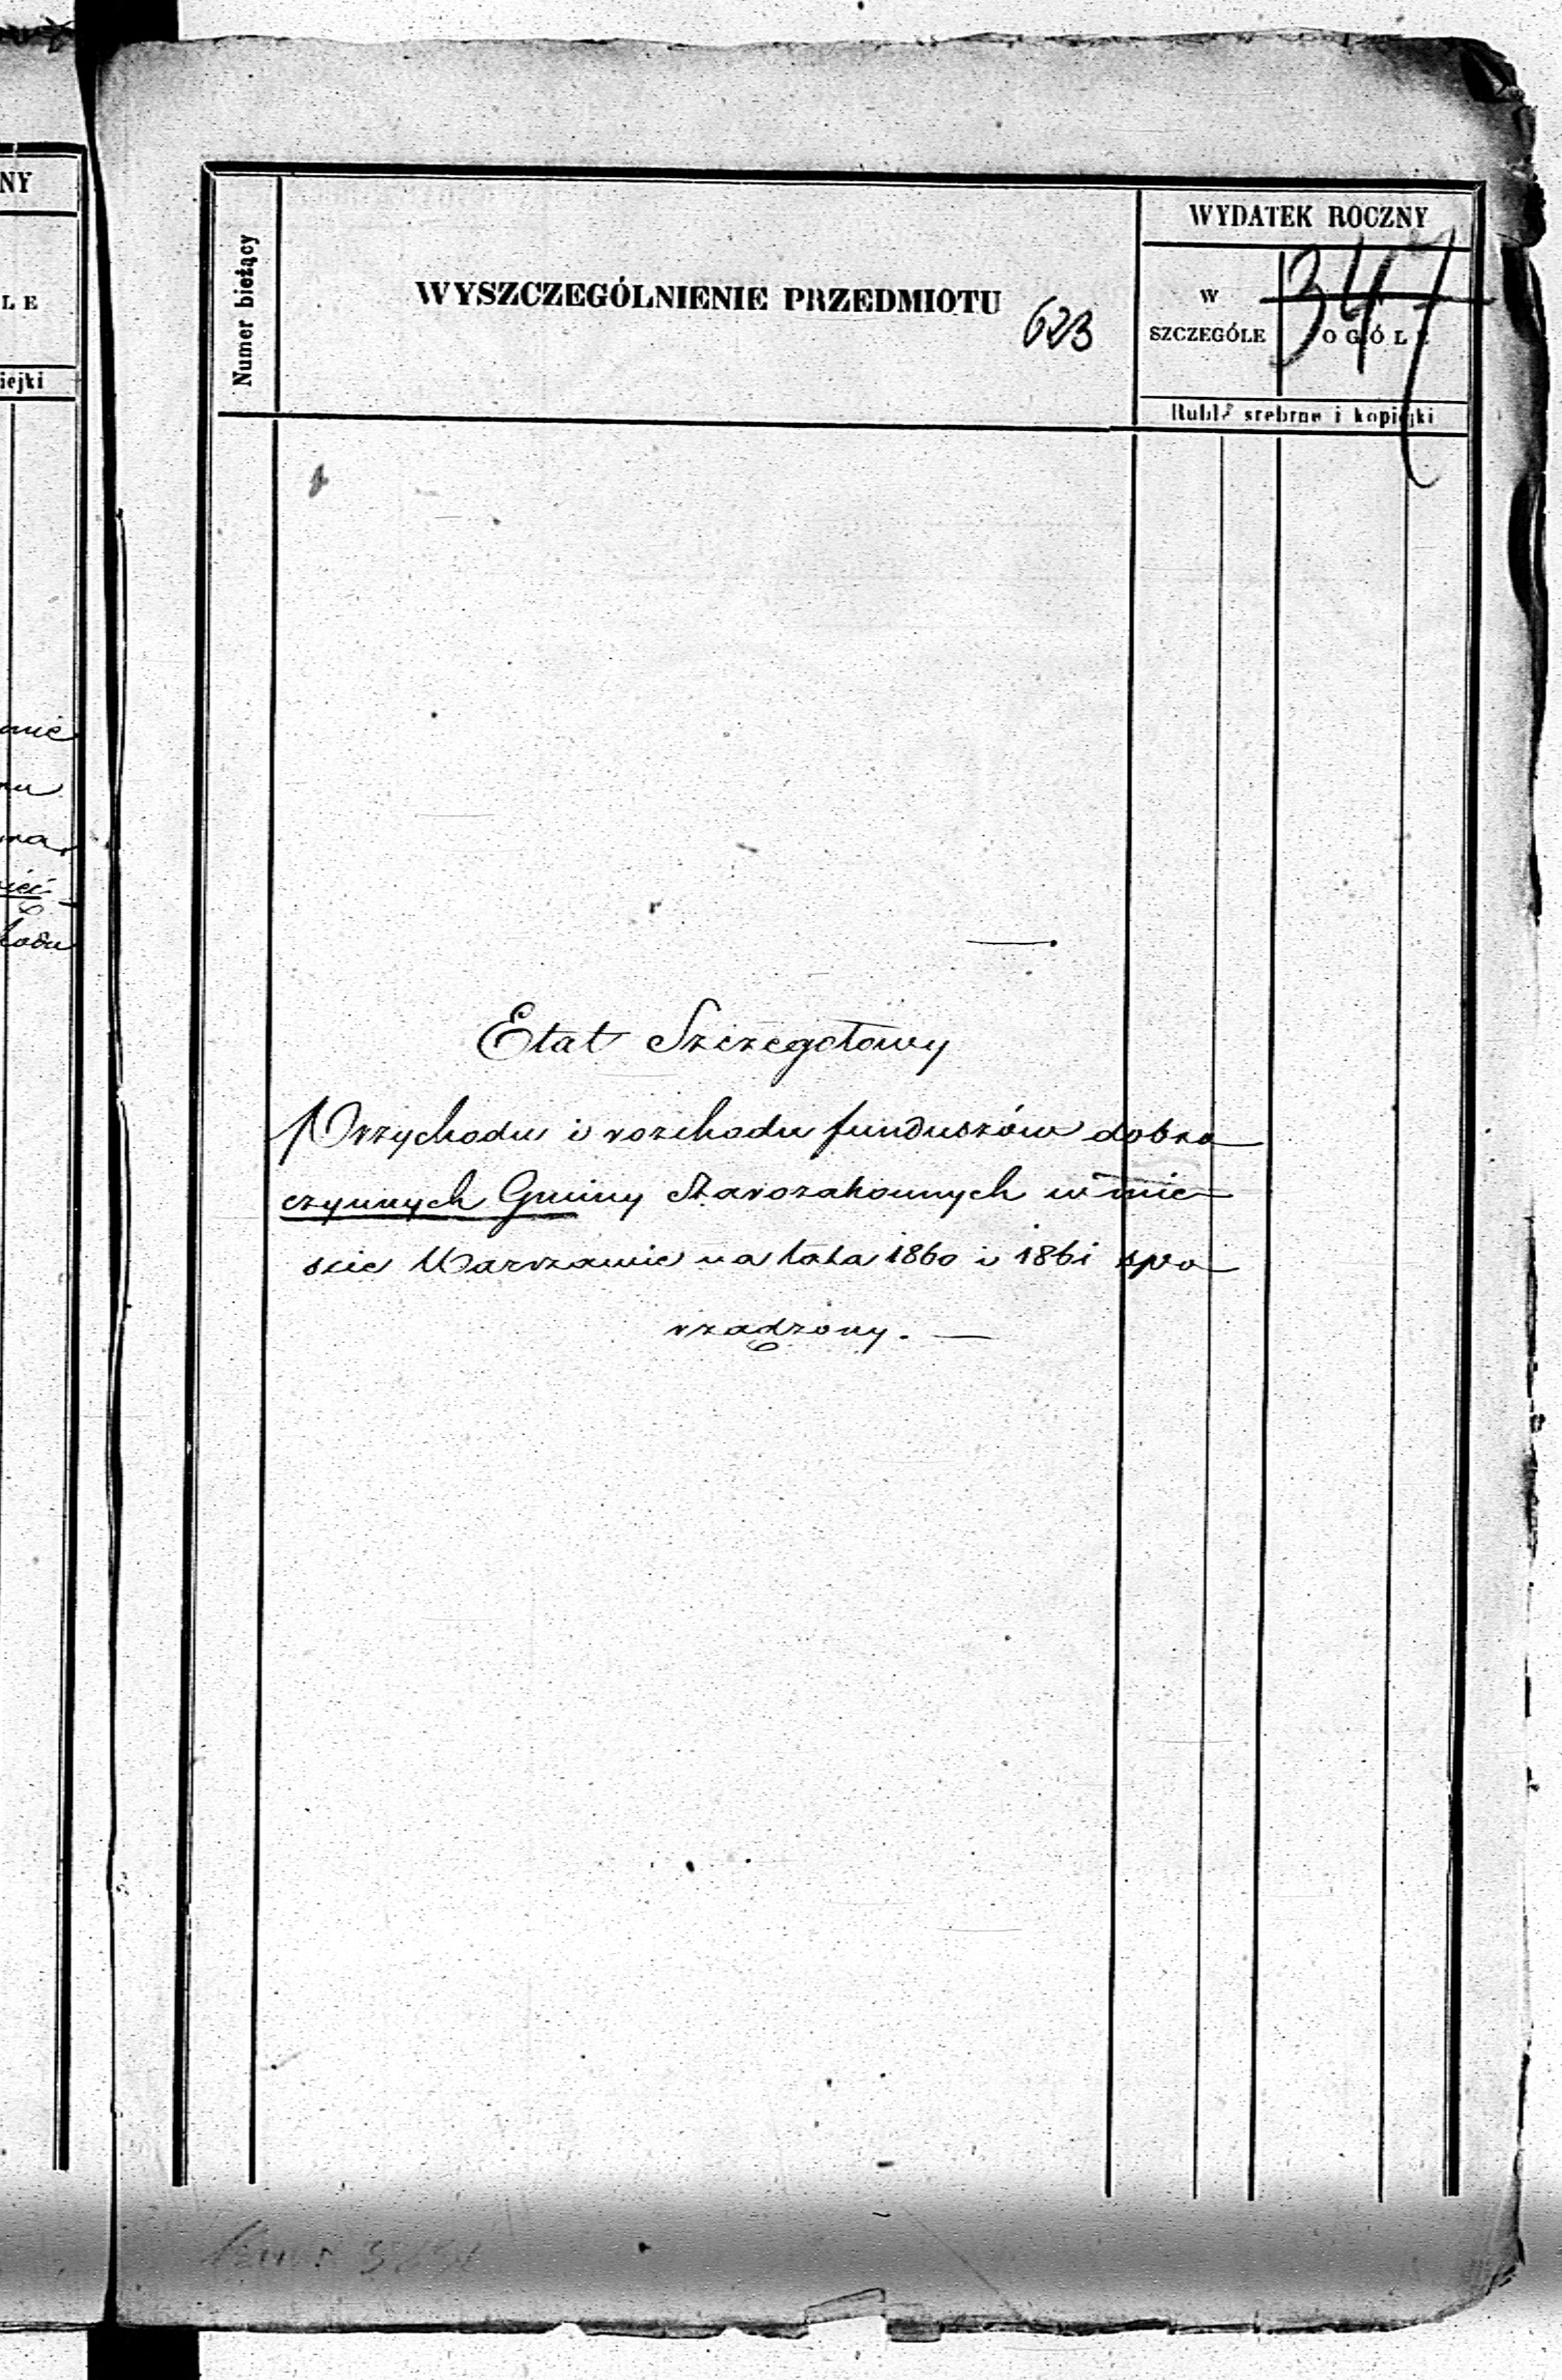 NY
LE
iejki
WYDATEK ROCZNY
Numer bieżący
WYSZCZEGÓLNIENIE PRZEDMIOTU
623
W
SZCZEGÓLE
OGÓLE
347
Ruble srebrne i kopiejki
Etat Szczegołowy
Przychodu i rozchodu funduszów dobro
czynnych Gminy Starozakonnych w mie-
scie Warszawie na lata 1860 i 1861 spo
rządzony. —